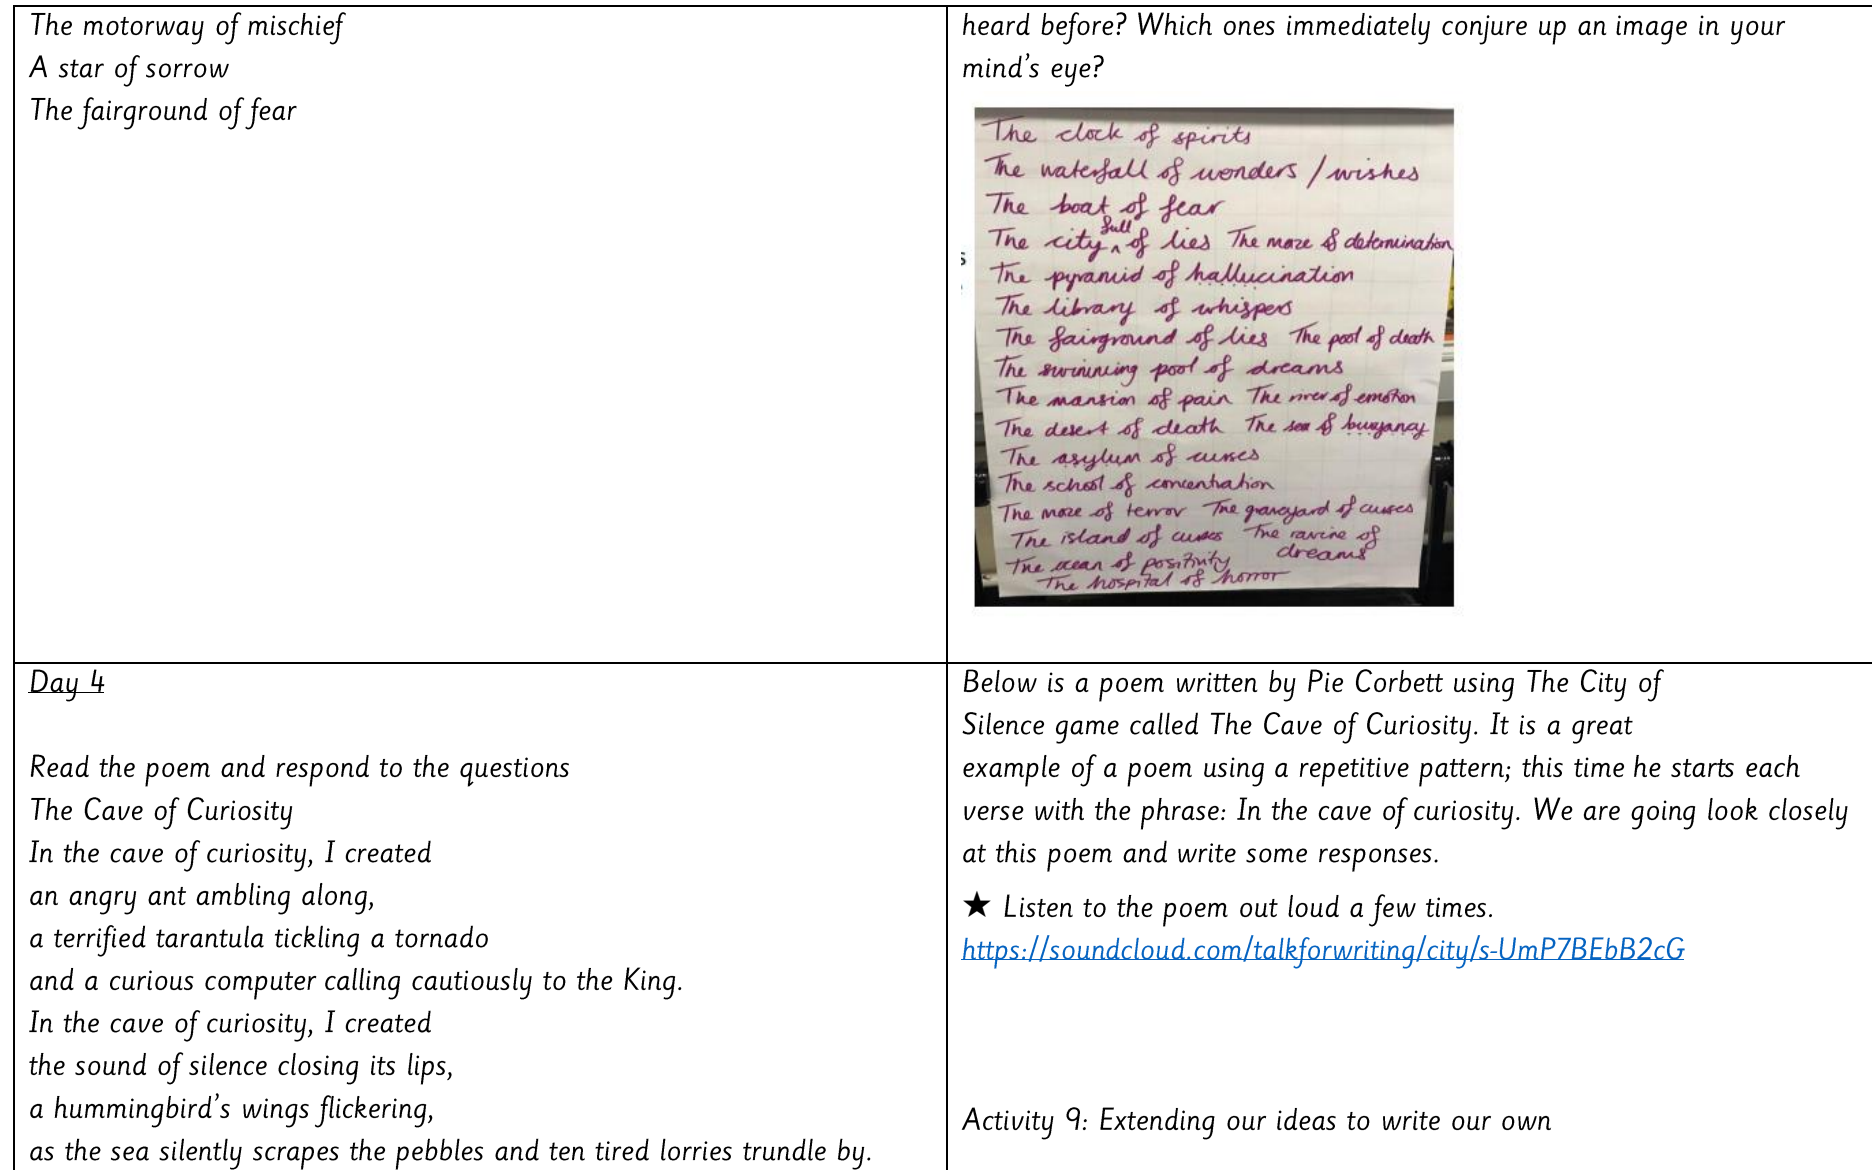 The motorway of mischief
A star of sorrow
The fairground of fear
heard before? Which ones immediately conjure up an image in your
mind's eye?
The clock of spirits
The waterfall of wonders / wishes
The boat of fear
The city full of lies The maze of determination
The pyramid of hallucination
The library of whispers
The fairground of lies The pool of death
The swimming pool of dreams
The mansion of pain The river of emotion
The desert of death The sea of buoyancy
The asylum of curses
The school of concentration
The maze of terror The graveyard of curses
The island of curses The ravine of
dreams
The ocean of positivity
The hospital of horror
Day 4
Read the poem and respond to the questions
The Cave of Curiosity
In the cave of curiosity, I created
an angry ant ambling along,
a terrified tarantula tickling a tornado
and a curious computer calling cautiously to the King.
In the cave of curiosity, I created
the sound of silence closing its lips,
a hummingbird's wings flickering,
as the sea silently scrapes the pebbles and ten tired lorries trundle by.
Below is a poem written by Pie Corbett using The City of
Silence game called The Cave of Curiosity. It is a great
example of a poem using a repetitive pattern; this time he starts each
verse with the phrase: In the cave of curiosity. We are going look closely
at this poem and write some responses.
★ Listen to the poem out loud a few times.
https://soundcloud.com/talkforwriting/city/s-UmP7BEbB2cG
Activity 9: Extending our ideas to write our own